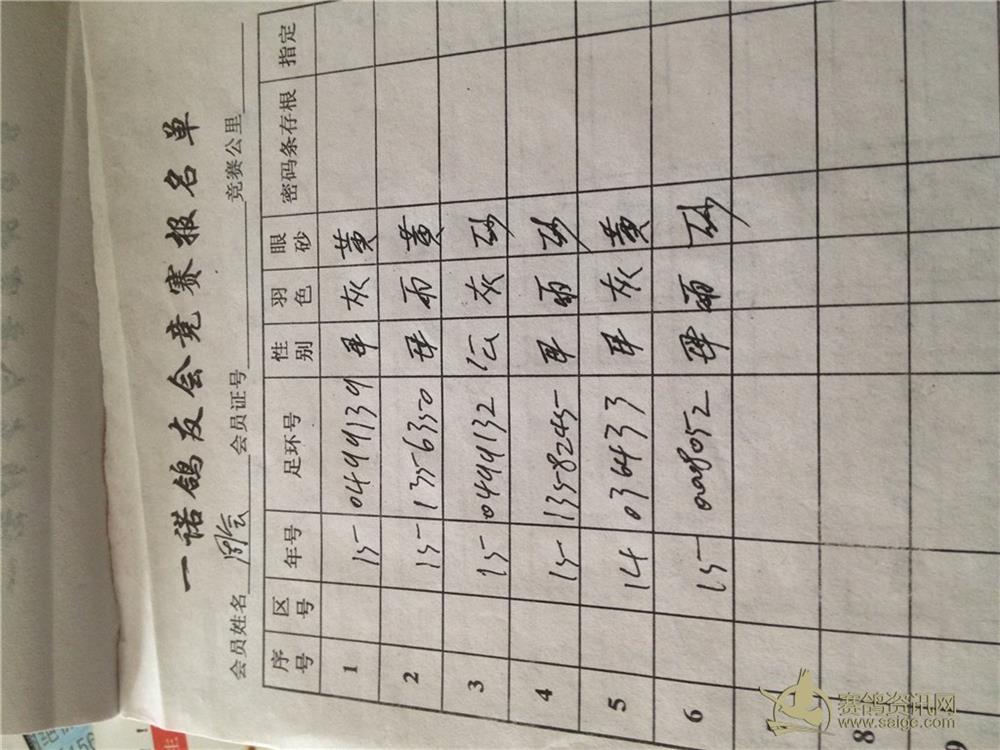 一诺鸽友会竞赛报名单
会员姓名 会员证号 竞赛公里
序号 区号 年号 足环号 性别 羽色 眼砂 密码条存根 指定
1 15 0499139 母 灰 黄
2 15 1356350 母 雨 黄
3 15 0499132 公 灰 砂
4 15 1358245 母 雨 砂
5 14 036433 母 灰 黄
6 15 母 雨 砂
8
9
赛鸽资讯网
www.saige.com